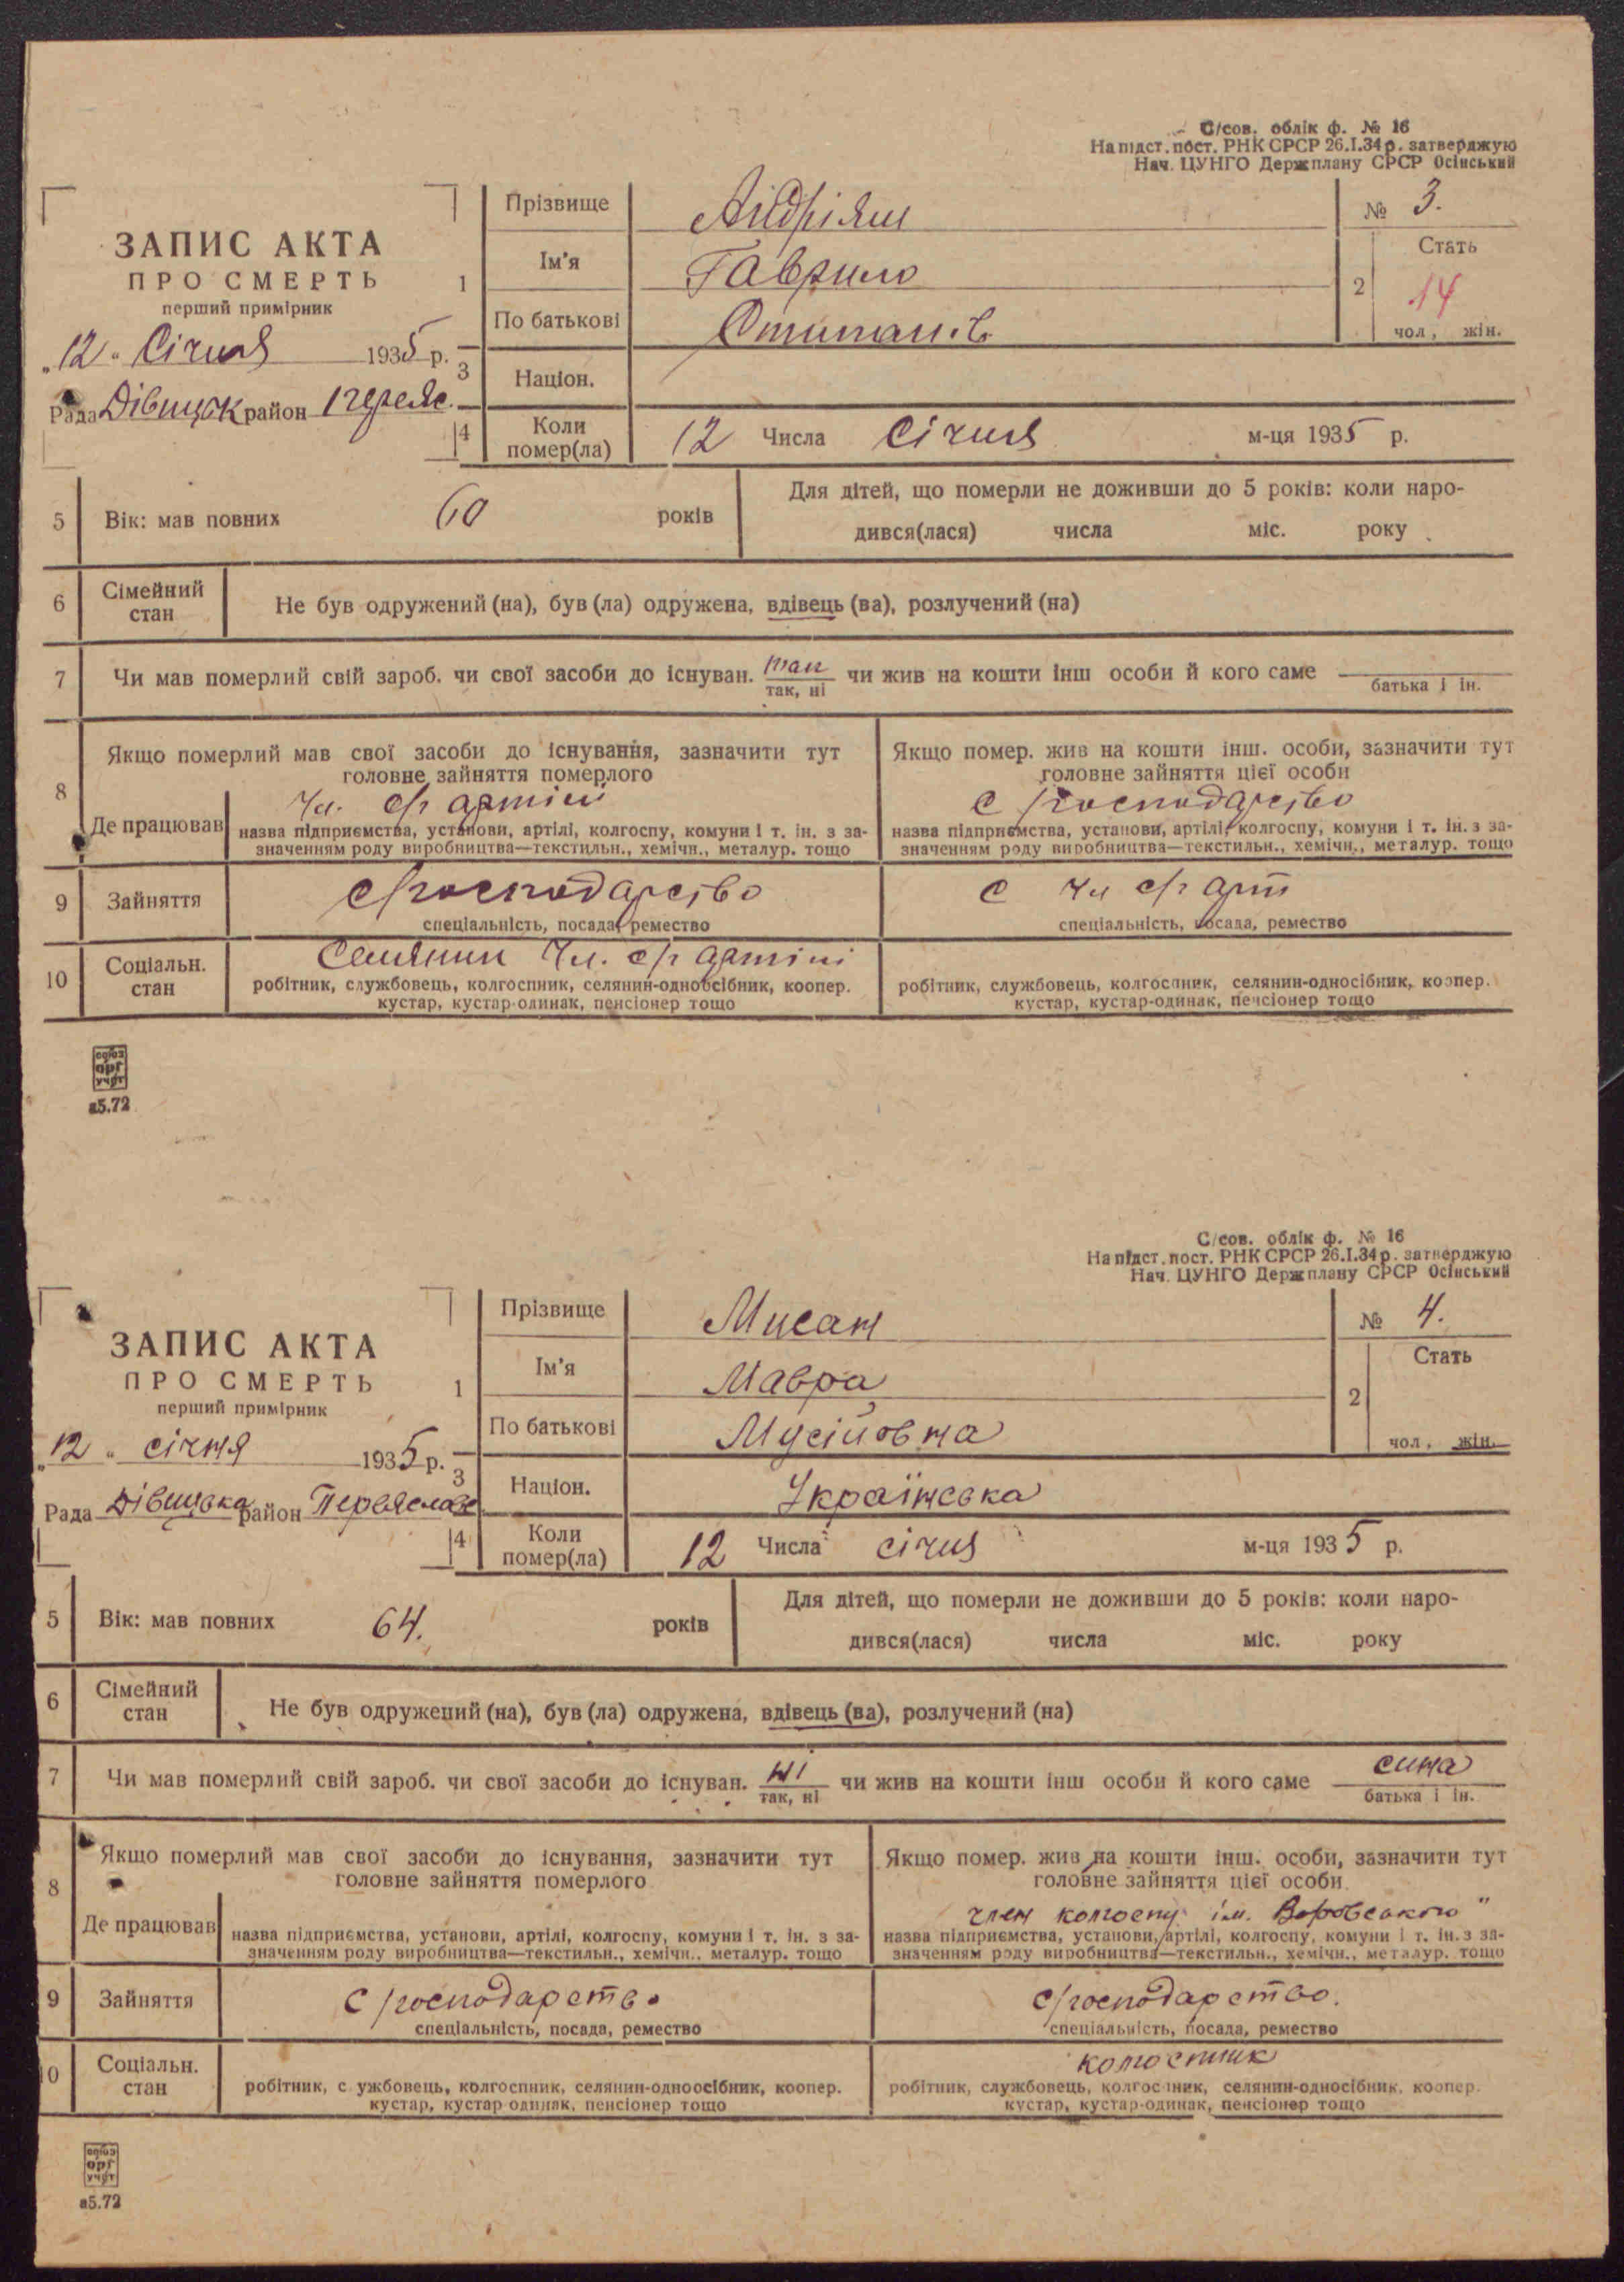 С/сов. облік ф. № 16
На підст. пост. РНК СРСР 26.I.34 р. затверджую
Нач. ЦУНГО Держплану СРСР Осінський
ЗАПИС АКТА
ПРО СМЕРТЬ
перший примірник
„12" Січня 1935 р.
Рада Дівицьк район Переяс.
1 Прізвище Андріяш
Ім'я Гаврило
По батькові
№ 3.
2 Стать
14
чол, жін.
3 Націон.
4 Коли помер(ла) 12 Числа Січня м-ця 1935 р.
5 Вік: мав повних 60 років
Для дітей, що померли не доживши до 5 років: коли наро-
дився(лася) числа міс. року
6 Сімейний стан Не був одружений (на), був (ла) одружена, вдівець (ва), розлучений (на)
7 Чи мав померлий свій зароб. чи свої засоби до існуван. так чи жив на кошти інш особи й кого саме
так, ні батька і ін.
8 Якщо померлий мав свої засоби до існування, зазначити тут
головне зайняття померлого
Де працював Чл. с/г артілі
назва підприємства, установи, артілі, колгоспу, комуни і т. ін. з за-
значенням роду виробництва—текстильн., хемічн., металур. тощо
Якщо помер. жив на кошти інш. особи, зазначити тут
головне зайняття цієї особи
с/господарство
назва підприємства, установи, артілі, колгоспу, комуни і т. ін. з за-
значенням роду виробництва—текстильн., хемічн., металур. тощо
9 Зайняття с/господарство
спеціальність, посада, ремество
с чл с/г арт
спеціальність, посада, ремество
10 Соціальн. стан Селянин Чл. с/г артілі
робітник, службовець, колгоспник, селянин-одноосібник, коопер.
кустар, кустар-одинак, пенсіонер тощо
робітник, службовець, колгоспник, селянин-односібник, коопер.
кустар, кустар-одинак, пенсіонер тощо
союз
орг
учет
а5.72
С/сов. облік ф. № 16
На підст. пост. РНК СРСР 26.I.34 р. затверджую
Нач. ЦУНГО Держплану СРСР Осінський
ЗАПИС АКТА
ПРО СМЕРТЬ
перший примірник
„12" січня 1935 р.
Рада Дівицька район Переяслав
1 Прізвище Мисан
Ім'я Мавра
По батькові Мусійовна
№ 4.
2 Стать
чол, жін.
3 Націон. Українська
4 Коли помер(ла) 12 Числа січня м-ця 1935 р.
5 Вік: мав повних 64. років
Для дітей, що померли не доживши до 5 років: коли наро-
дився(лася) числа міс. року
6 Сімейний стан Не був одружений (на), був (ла) одружена, вдівець (ва), розлучений (на)
7 Чи мав померлий свій зароб. чи свої засоби до існуван. ні чи жив на кошти інш особи й кого саме сина
так, ні батька і ін.
8 Якщо померлий мав свої засоби до існування, зазначити тут
головне зайняття померлого
Де працював
назва підприємства, установи, артілі, колгоспу, комуни і т. ін. з за-
значенням роду виробництва—текстильн., хемічн.. металур. тощо
Якщо помер. жив на кошти інш. особи, зазначити тут
головне зайняття цієї особи
член колгоспу ім. Воровського"
назва підприємства, установи, артілі, колгоспу, комуни і т. ін. з за-
значенням роду виробництва—текстильн., хемічн., металур. тощо
9 Зайняття с/господарство
спеціальність, посада, ремество
с/господарство.
спеціальність, посада, ремество
10 Соціальн. стан
робітник, службовець, колгоспник, селянин-одноосібник, коопер.
кустар, кустар одинак, пенсіонер тощо
колгоспник
робітник, службовець, колгоспник, селянин-односібник, коопер.
кустар, кустар-одинак, пенсіонер тощо
союз
орг
учет
а5.72